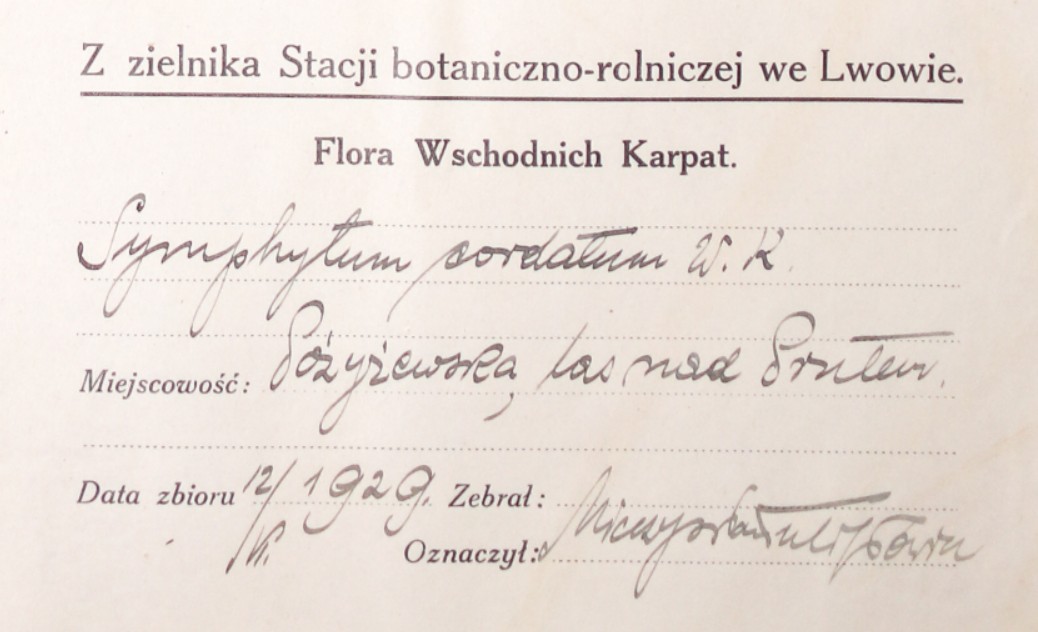 Z zielnika Stacji botaniczno-rolniczej we Lwowie.
Flora Wschodnich Karpat.
Symphytum cordatum W. K.
Miejscowość: Pożyżewska, las nad Prutem.
Data zbioru 12/VI. 1929. Zebrał: Mieczysław
Oznaczył: